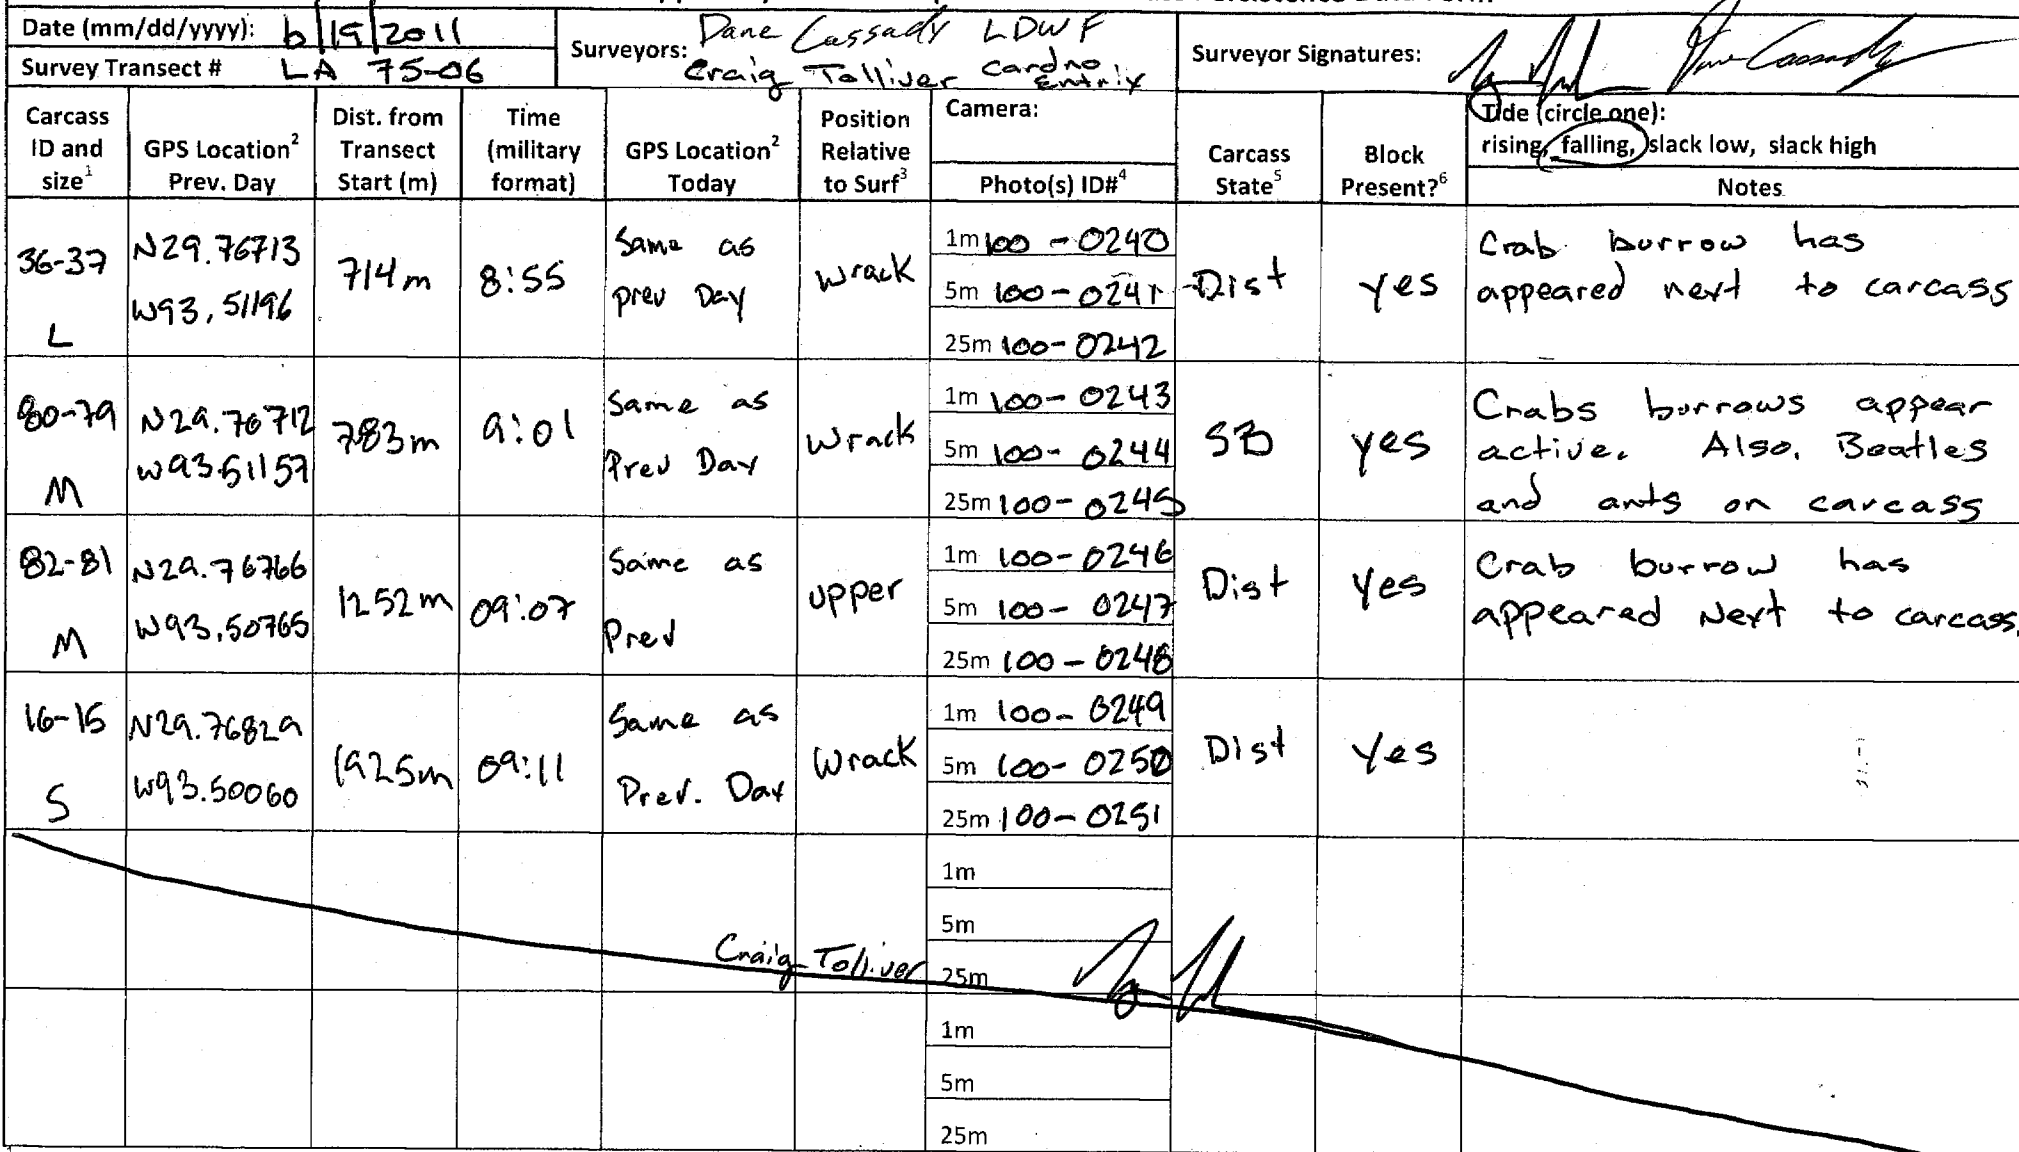 Date (mm/dd/yyyy): 6/19/2011
Survey Transect # LA 75-06
Surveyors: Dane Cassady LDWF
Craig Tolliver Cardno Entrix
Surveyor Signatures:
Carcass ID and size1
GPS Location2 Prev. Day
Dist. from Transect Start (m)
Time (military format)
GPS Location2 Today
Position Relative to Surf3
Camera:
Photo(s) ID#4
Carcass State5
Block Present?6
Tide (circle one):
rising, falling, slack low, slack high
Notes
36-37
L
N29.76713
W93.51196
714m
8:55
Same as
prev Day
Wrack
1m 100-0240
5m 100-0241
25m 100-0242
Dist
yes
Crab burrow has
appeared next to carcass
80-79
M
N29.76712
W93.51157
783m
9:01
Same as
Prev Day
Wrack
1m 100-0243
5m 100-0244
25m 100-0245
SB
yes
Crabs borrows appear
active. Also, Beatles
and ants on carcass
82-81
M
N29.76766
W93.50765
1252m
09:07
Same as
Prev
upper
1m 100-0246
5m 100-0247
25m 100-0248
Dist
Yes
Crab burrow has
appeared Next to carcass.
16-15
S
N29.76829
W93.50060
1925m
09:11
Same as
Prev. Day
Wrack
1m 100-0249
5m 100-0250
25m 100-0251
Dist
Yes
1m
5m
25m
Craig Tolliver
1m
5m
25m